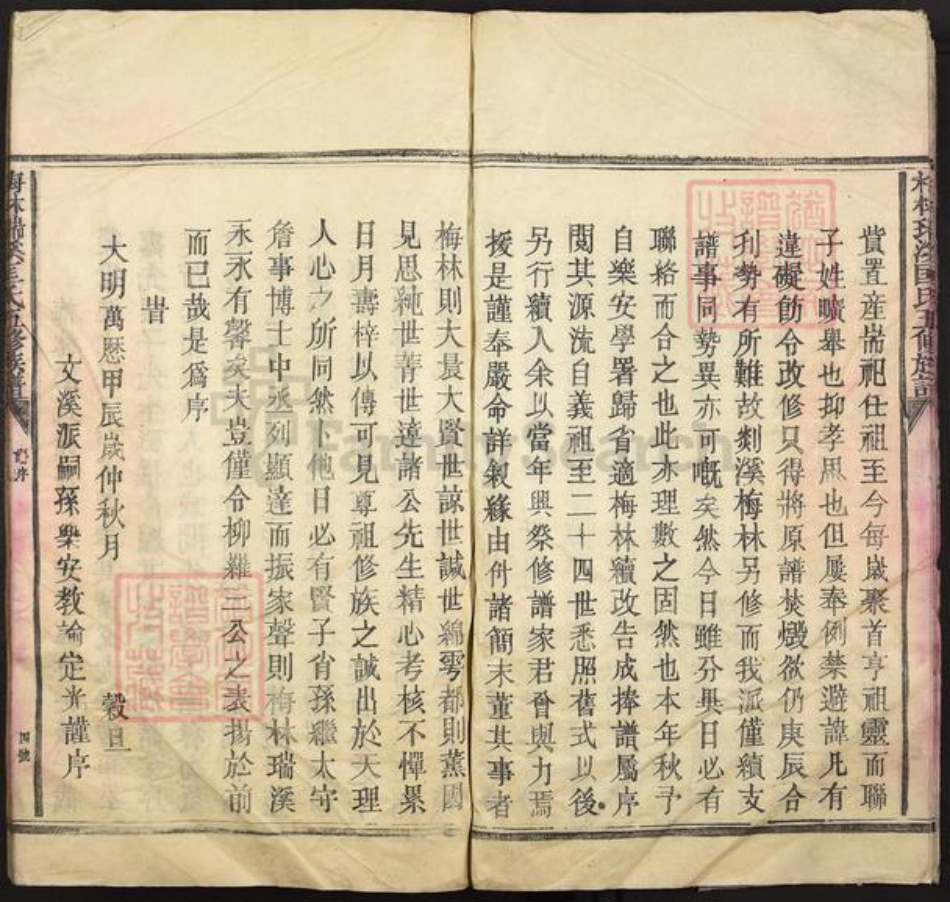 貲置産耑祀仕祖至今每嵗聚首亨祖靈而聯
子姓曠舉也抑孝思也但屢奉例禁避諱凡有
違礙飭令改修只得將原譜焚燬欲仍庚辰合
利勢有所難故剡溪梅林另修而我派僅續支
譜事同勢異亦可嘅矣然今日雖分異日必有
聯絡而合之也此亦理數之固然也本年秋予
自樂安學署歸省適梅林續改告成捧譜屬序
閱其源流自義祖至二十四世悉照舊式以後
另行續入余以當年興祭修譜家君曾與力焉
援是謹奉嚴命詳叙緣由付諸簡末董其事者
梅林則大晨大賢世諒世誠世綿雩都則薰國
見思純世菁世遠諸公先生精心考核不憚累
日月壽梓以傳可見尊祖修族之誠出於天理
人心之所同然卜他日必有賢子省孫繼太守
詹事博士中丞列顯達而振家聲則梅林瑞溪
永永有馨矣夫豈僅令柳雍三公之表揚於前
而已哉是爲序
旹
大明萬厯甲辰歲仲秋月 穀旦
文溪派嗣孫樂安教諭定光謹序
梅林瑞溪 氏五修族譜
序
四號
FamilySearch